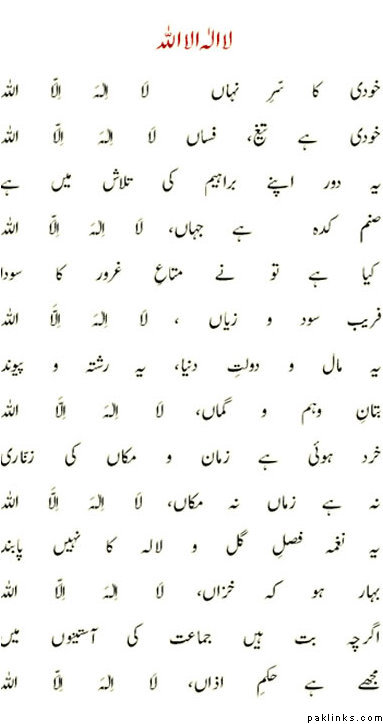 لا الٰہ الا اللہ
خودی کا سّرِ نہاں لَا اِلٰہَ اِلَّا اللہ
خودی ہے تیغ، فساں لَا اِلٰہَ اِلَّا اللہ
یہ دور اپنے براہیم کی تلاش میں ہے
صنم کدہ ہے جہاں، لَا اِلٰہَ اِلَّا اللہ
کیا ہے تو نے متاعِ غرور کا سودا
فریب سود و زیاں ، لَا اِلٰہَ اِلَّا اللہ
یہ مال و دولتِ دنیا، یہ رشتہ و پیوند
بتانِ وہم و گماں، لَا اِلٰہَ اِلَّا اللہ
خرد ہوئی ہے زمان و مکاں کی زنّاری
نہ ہے زماں نہ مکاں، لَا اِلٰہَ اِلَّا اللہ
یہ نغمہ فصلِ گل و لالہ کا نہیں پابند
بہار ہو کہ خزاں، لَا اِلٰہَ اِلَّا اللہ
اگرچہ بت ہیں جماعت کی آستینوں میں
مجھے ہے حکمِ اذاں، لَا اِلٰہَ اِلَّا اللہ
paklinks.com